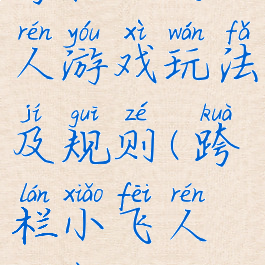 rén yóu xì wán fǎ
人游戏玩法
jí guī zé kuà
及规则(跨
lán xiǎo fēi rén
栏小飞人